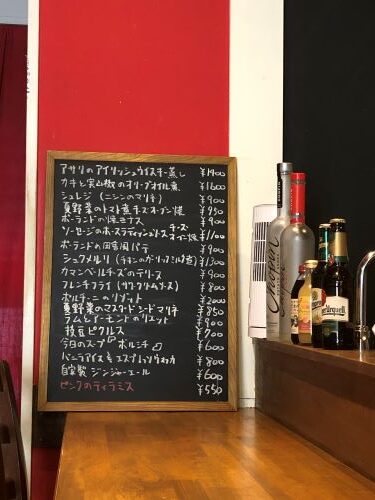 アサリのアイリッシュウイスキー蒸し ¥1900
カキと実山椒のオリーブオイル煮 ¥1600
シュレジ(ニシンのマリネ) ¥900
夏野菜のトマト煮チーズオーブン焼 ¥950
ポーランドの焼 ¥900
チーズ
ソーセージの オーブン焼 ¥1100
ポーランドの田舎風パテ ¥900
シュクメルリ(チキンのガーリックミルク煮) ¥1300
カマンベールチーズのテリーヌ ¥900
フレンチフライ(サワークリームソース) ¥800
ポルチーニのリゾット ¥2000
夏野菜のマスタードシードマリネ ¥850
ラムレーズン のリエット ¥900
枝豆ピクルス ¥700
今日のスープ ポルチーニ ¥600
バニラアイス & エスプレッソウォッカ ¥800
自家製ジンジャーエール ¥600
ピンクのティラミス ¥550
Chopin